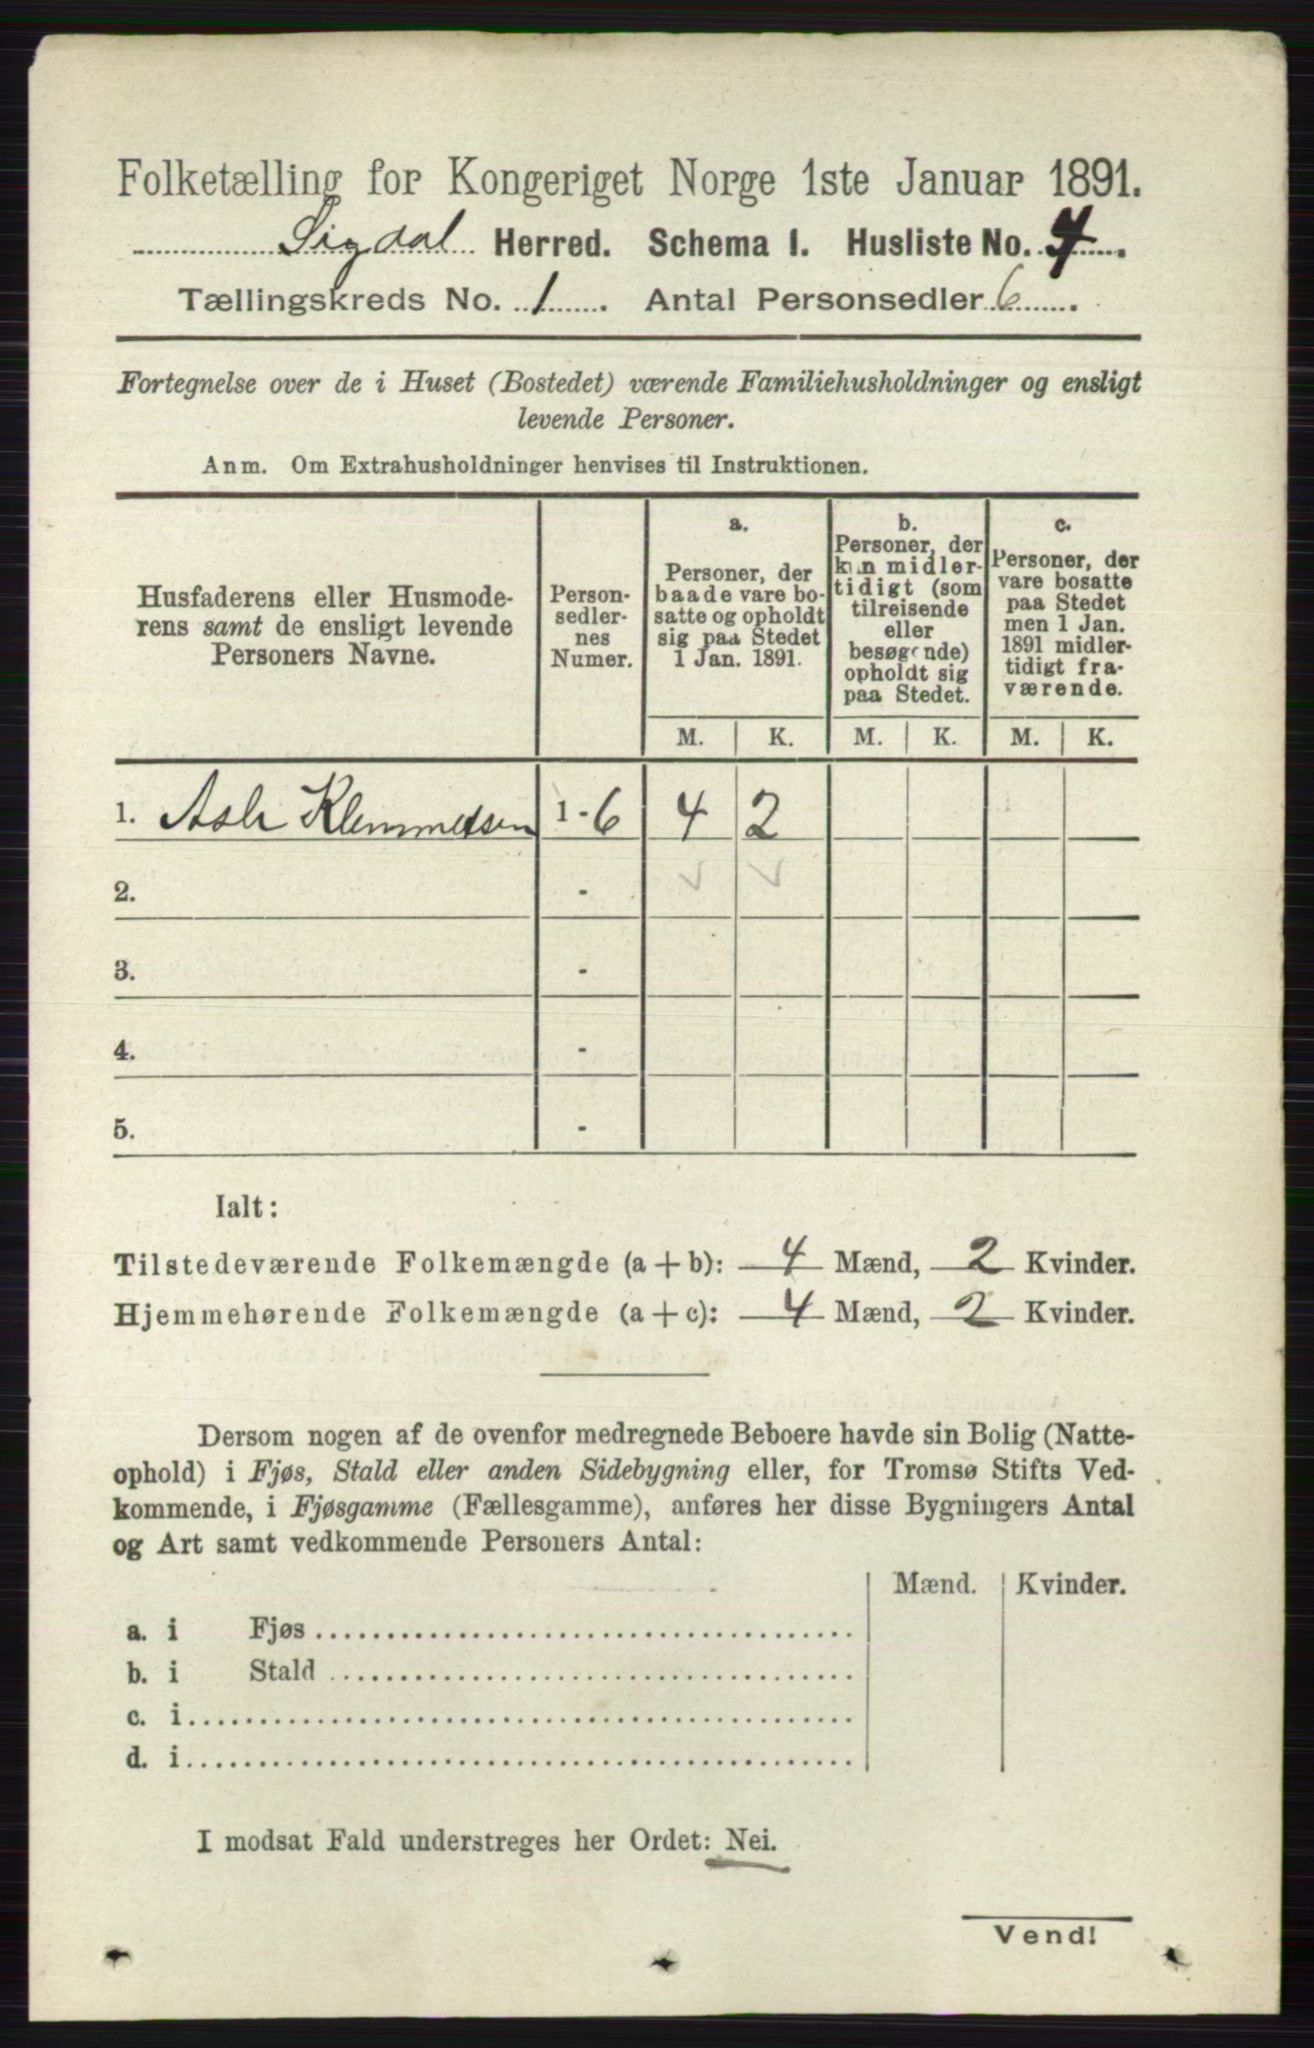 Folketælling for Kongeriget Norge 1ste Januar 1891.
Sigdal Herred. Schema 1. Husliste No. 4
Tællingskreds No. 1. Antal Personsedler 6.
Fortegnelse over de i Huset (Bostedet) værende Familiehusholdninger og ensligt
levende Personer.
Anm. Om Extrahusholdninger henvises til Instruktionen.
Husfaderens eller Husmode-
rens samt de ensligt levende
Personers Navne.
Person-
sedler-
nes
Numer.
a.
Personer, der
baade vare bo-
satte og opholdt
sig paa Stedet
1 Jan. 1891.
b.
Personer, der
kun midler-
tidigt (som
tilreisende
eller
besøgende)
opholdt sig
paa Stedet.
c.
Personer, der
vare bosatte
paa Stedet
men 1 Jan.
1891 midler-
tidigt fra-
værende.
M. K. M. K. M. K.
1. Asle Klemmetsen 1 - 6 4 2
2. -
3. -
4. -
5. -
Ialt:
Tilstedeværende Folkemængde (a + b): 4 Mænd, 2 Kvinder.
Hjemmehørende Folkemængde (a + c): 4 Mænd, 2 Kvinder.
Dersom nogen af de ovenfor medregnede Beboere havde sin Bolig (Natte-
ophold) i Fjøs, Stald eller anden Sidebygning eller, for Tromsø Stifts Ved-
kommende, i Fjøsgamme (Fællesgamme), anføres her disse Bygningers Antal
og Art samt vedkommende Personers Antal:
Mænd. Kvinder.
a. i Fjøs
b. i Stald
c. i
d. i
I modsat Fald understreges her Ordet: Nei.
Vend!